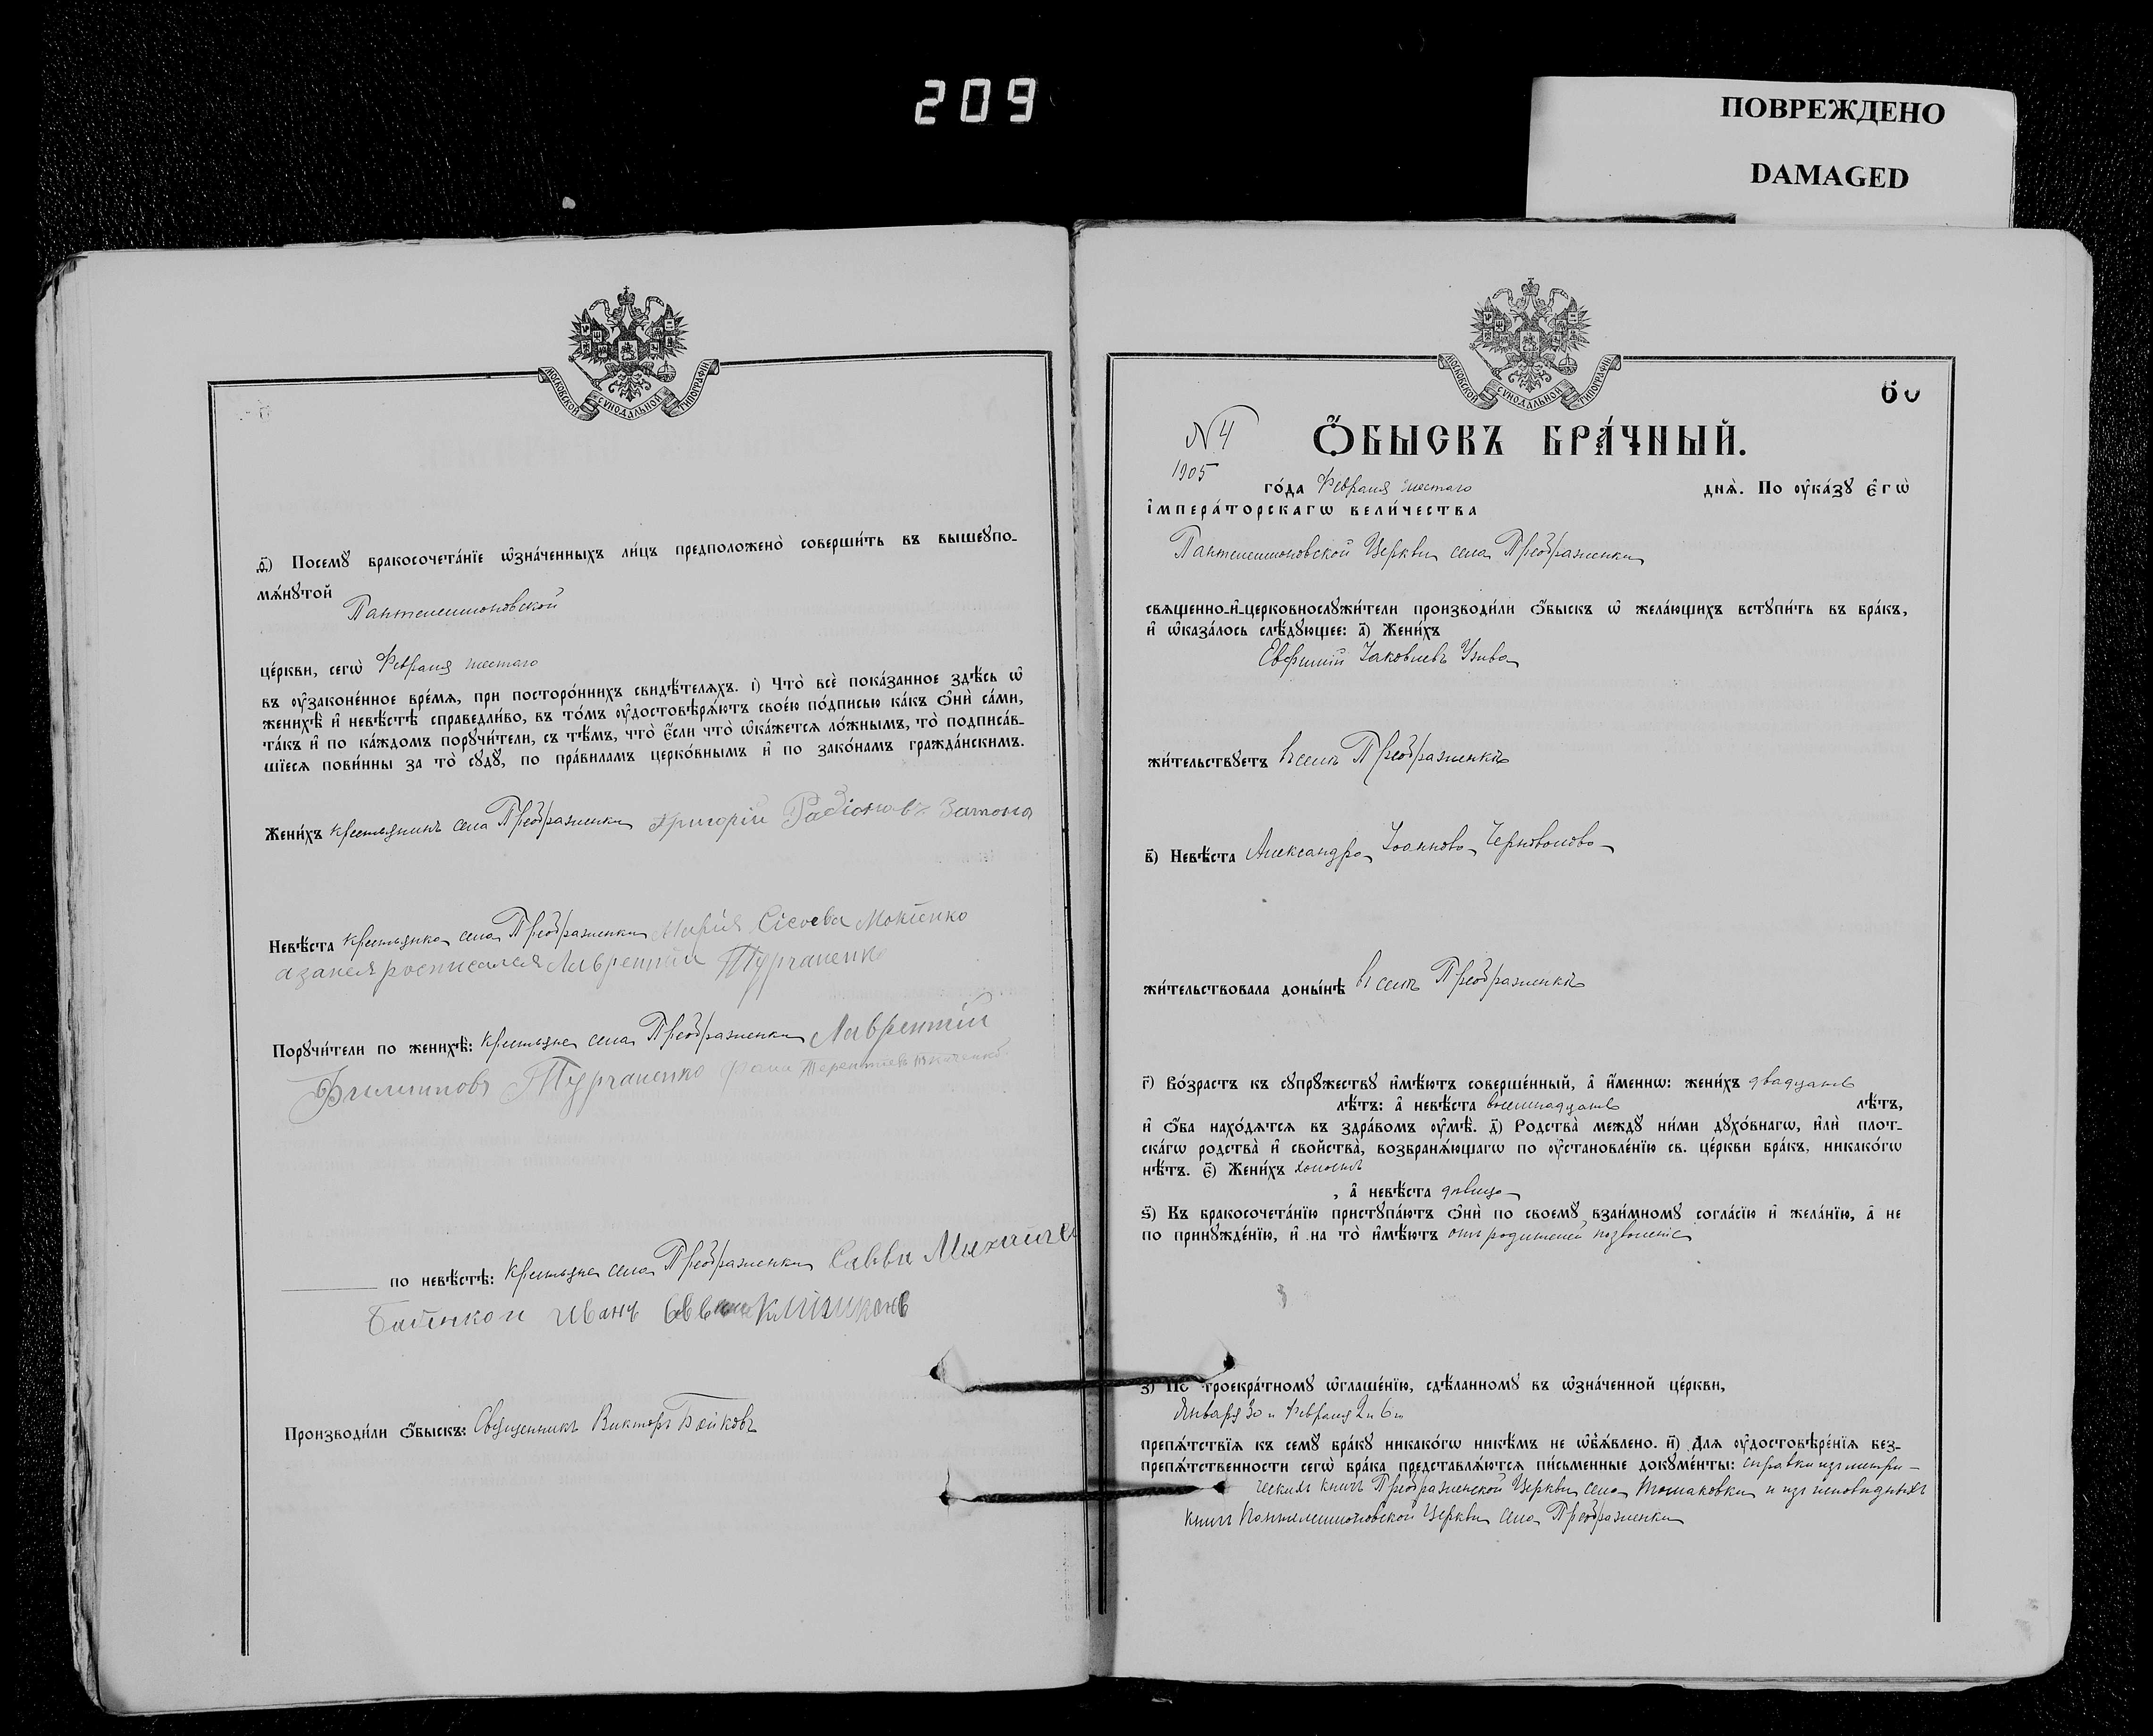 209
ПОВРЕЖДЕНО
DAMAGED
МОСКОВСКОЙ СѴНОДАЛЬНОЙ ТИПОГРАФІИ
ѳ҃) Посемꙋ̀ бракосочета́нїе ѡ҆зна́ченныхъ ли́цъ предположено̀ соверши́ть въ вышеꙋпо-
мѧ́нꙋтой
Пантелеимоновской
це́ркви, сегѡ̀ Февраля шестаго
въ ᲂу҆законе́нное вре́мѧ, при посторо́ннихъ свидѣ́телѧхъ. і҃) Что̀ всѐ пока́занное здѣ́сь ѡ҆
женихѣ̀ и҆ невѣ́стѣ справедли́во, въ то́мъ ᲂу҆достовѣрѧ́ютъ свое́ю по́дписью ка́къ ѻ҆нѝ са́ми,
та́къ и҆ по ка́ждомъ порꙋчи́тели, съ тѣ́мъ, что̀ є҆́сли что̀ ѡ҆ка́жетсѧ ло́жнымъ, то̀ подписа́в-
шїесѧ пови́нны за то̀ сꙋдꙋ̀, по пра́виламъ церко́внымъ и҆ по зако́намъ гражда́нскимъ.
Жени́хъ крестьянинъ села Преображенки Григорій Радіоновъ Затона
Невѣ́ста крестьянка села Преображенки Марія Сісоева Мокіенко
а занея росписался Лаврентій Турчаненко
Порꙋчи́тели по женихѣ̀: крестьяне села Преображенки Лаврентій
Филиповъ Турчаненко Терентіевъ
по невѣ́стѣ: крестьяне села Преображенки Савва
Иванъ
Производи́ли ѻ҆́быскъ: Священникъ Викторъ Бойковъ
МОСКОВСКОЙ СѴНОДАЛЬНОЙ ТИПОГРАФІИ
60
N 4
Ѻ҆́БЫСКЪ БРА́ЧНЫЙ.
1905
го́да Февраля шестаго днѧ̀. По ᲂу҆ка́зꙋ Є҆гѡ̀
І҆мпера́торскагѡ вели́чества
Пантелеимоновской Церкви села Преображенки
свѧщенно-и҆-церковнослꙋжи́тели производи́ли ѻ҆́быскъ ѡ҆ жела́ющихъ встꙋпи́ть въ бра́къ,
и҆ ѡ҆каза́лось слѣ́дꙋющее: а҃) Жени́хъ
Евфимій Іаковлевъ Узива
жи́тельствꙋетъ въ селѣ Преображенкѣ
в҃) Невѣ́ста Александра Іоаннова Черноволова
жи́тельствовала доны́нѣ въ селѣ Преображенкѣ
г҃) Во́зрастъ къ сꙋпрꙋ́жествꙋ и҆мѣ́ютъ соверше́нный, а҆ и҆́меннѡ: жени́хъ двадцать
лѣ́тъ: а҆ невѣ́ста восемнадцать лѣ́тъ,
и҆ ѻ҆́ба нахо́дѧтсѧ въ здра́вомъ ᲂу҆мѣ̀. д҃) Родства̀ междꙋ ни́ми дꙋхо́внагѡ, и҆лѝ плот-
ска́гѡ родства̀ и҆ свойства̀, возбранѧ́ющагѡ по ᲂу҆становле́нїю св. це́ркви бра́къ, никако́гѡ
нѣ́тъ. є҃) Жени́хъ холостъ
, а҆ невѣ́ста дѣвица
ѕ҃) Къ бракосочета́нїю пристꙋпа́ютъ ѻ҆нѝ по своемꙋ̀ взаи́мномꙋ согла́сїю и҆ жела́нїю, а҆ не
по принꙋжде́нїю, и҆ на то̀ и҆мѣ́ютъ отъ родителей позволеніе
з҃) По троекра́тномꙋ ѡ҆глаше́нїю, сдѣ́ланномꙋ въ ѡ҆зна́ченной це́ркви,
Января 30 и Февраля 2 и 6 го
препѧ́тствїѧ къ семꙋ̀ бра́кꙋ никако́гѡ никѣ́мъ не ѡ҆б̾ѧ́влено. и҃) Длѧ ᲂу҆достовѣре́нїѧ без-
препѧ́тственности сегѡ̀ бра́ка представлѧ́ютсѧ пи́сьменные докꙋме́нты: справки изъ метри-
ческихъ книгъ Преображенской Церкви села Томаковки и изъ исповѣдныхъ
книгъ Пантелеимоновской Церкви села Преображенки